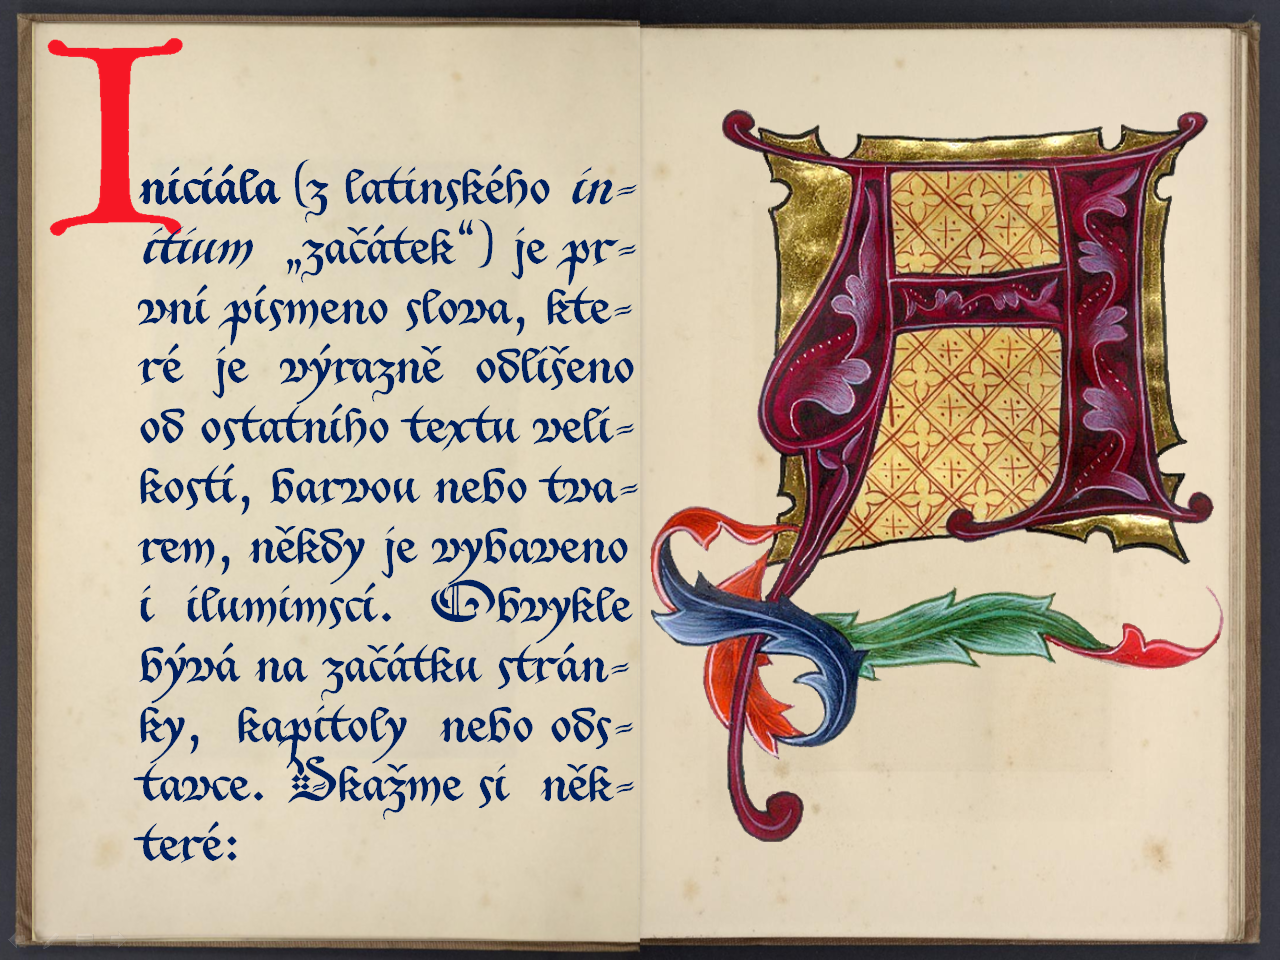 Iniciála (z latinského in=
itium „začátek“) je pr=
vní písmeno slova, kte=
ré je výrazně odlišeno
od ostatního textu veli=
kostí, barvou nebo tva=
rem, někdy je vybaveno
i ilumimscí. Obvykle
bývá na začátku strán=
ky, kapitoly nebo ods=
tavce. Ukažme si něk=
teré:
A